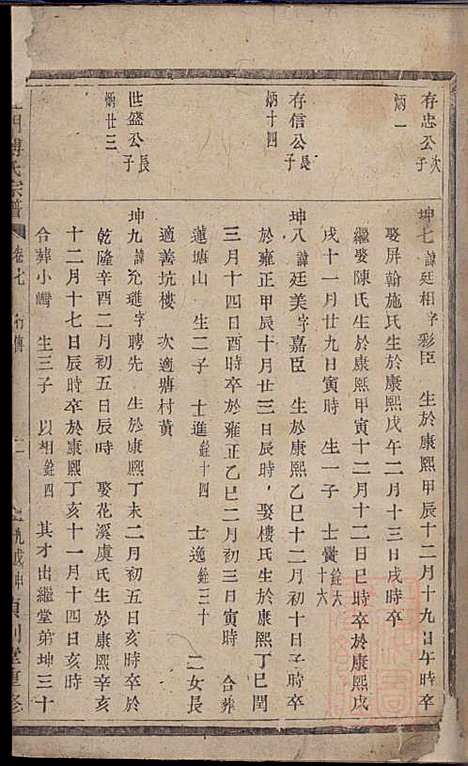 存忠公次子
炳一
存信公長子
炳十四
世盛公長子
炳廿三
坤七 諱廷相字彩臣 生於康熙甲辰十二月十九日午時卒
娶屏翰施氏生於康熙戊午二月十三日戌時卒
繼娶陳氏生於康熙甲寅十二月十二日巳時卒於康熙戊
戌十一月廿九日寅時 生一子 士
坤八 諱廷美字嘉臣 生於康熙乙巳十二月初十日子時卒
於雍正甲辰十月廿三日辰時，娶樓氏生於康熙丁巳閏
三月十四日酉時卒於雍正乙巳二月初三日寅時 合葬
蓮塘山 生二子 士進銓十四 士逸銓三十 二女長
適善坑樓 次適塘村黃
坤九 諱允璡字聘先 生於康熙丁未二月初五日亥時卒於
乾隆辛酉二月初五日辰時 娶花溪虞氏生於康熙辛亥
十二月十七日辰時卒於康熙丁亥十一月十四日亥時
合葬小 生三子 以相銓四 其才出繼堂弟坤三十
傅氏宗譜
卷七 行傳
貞